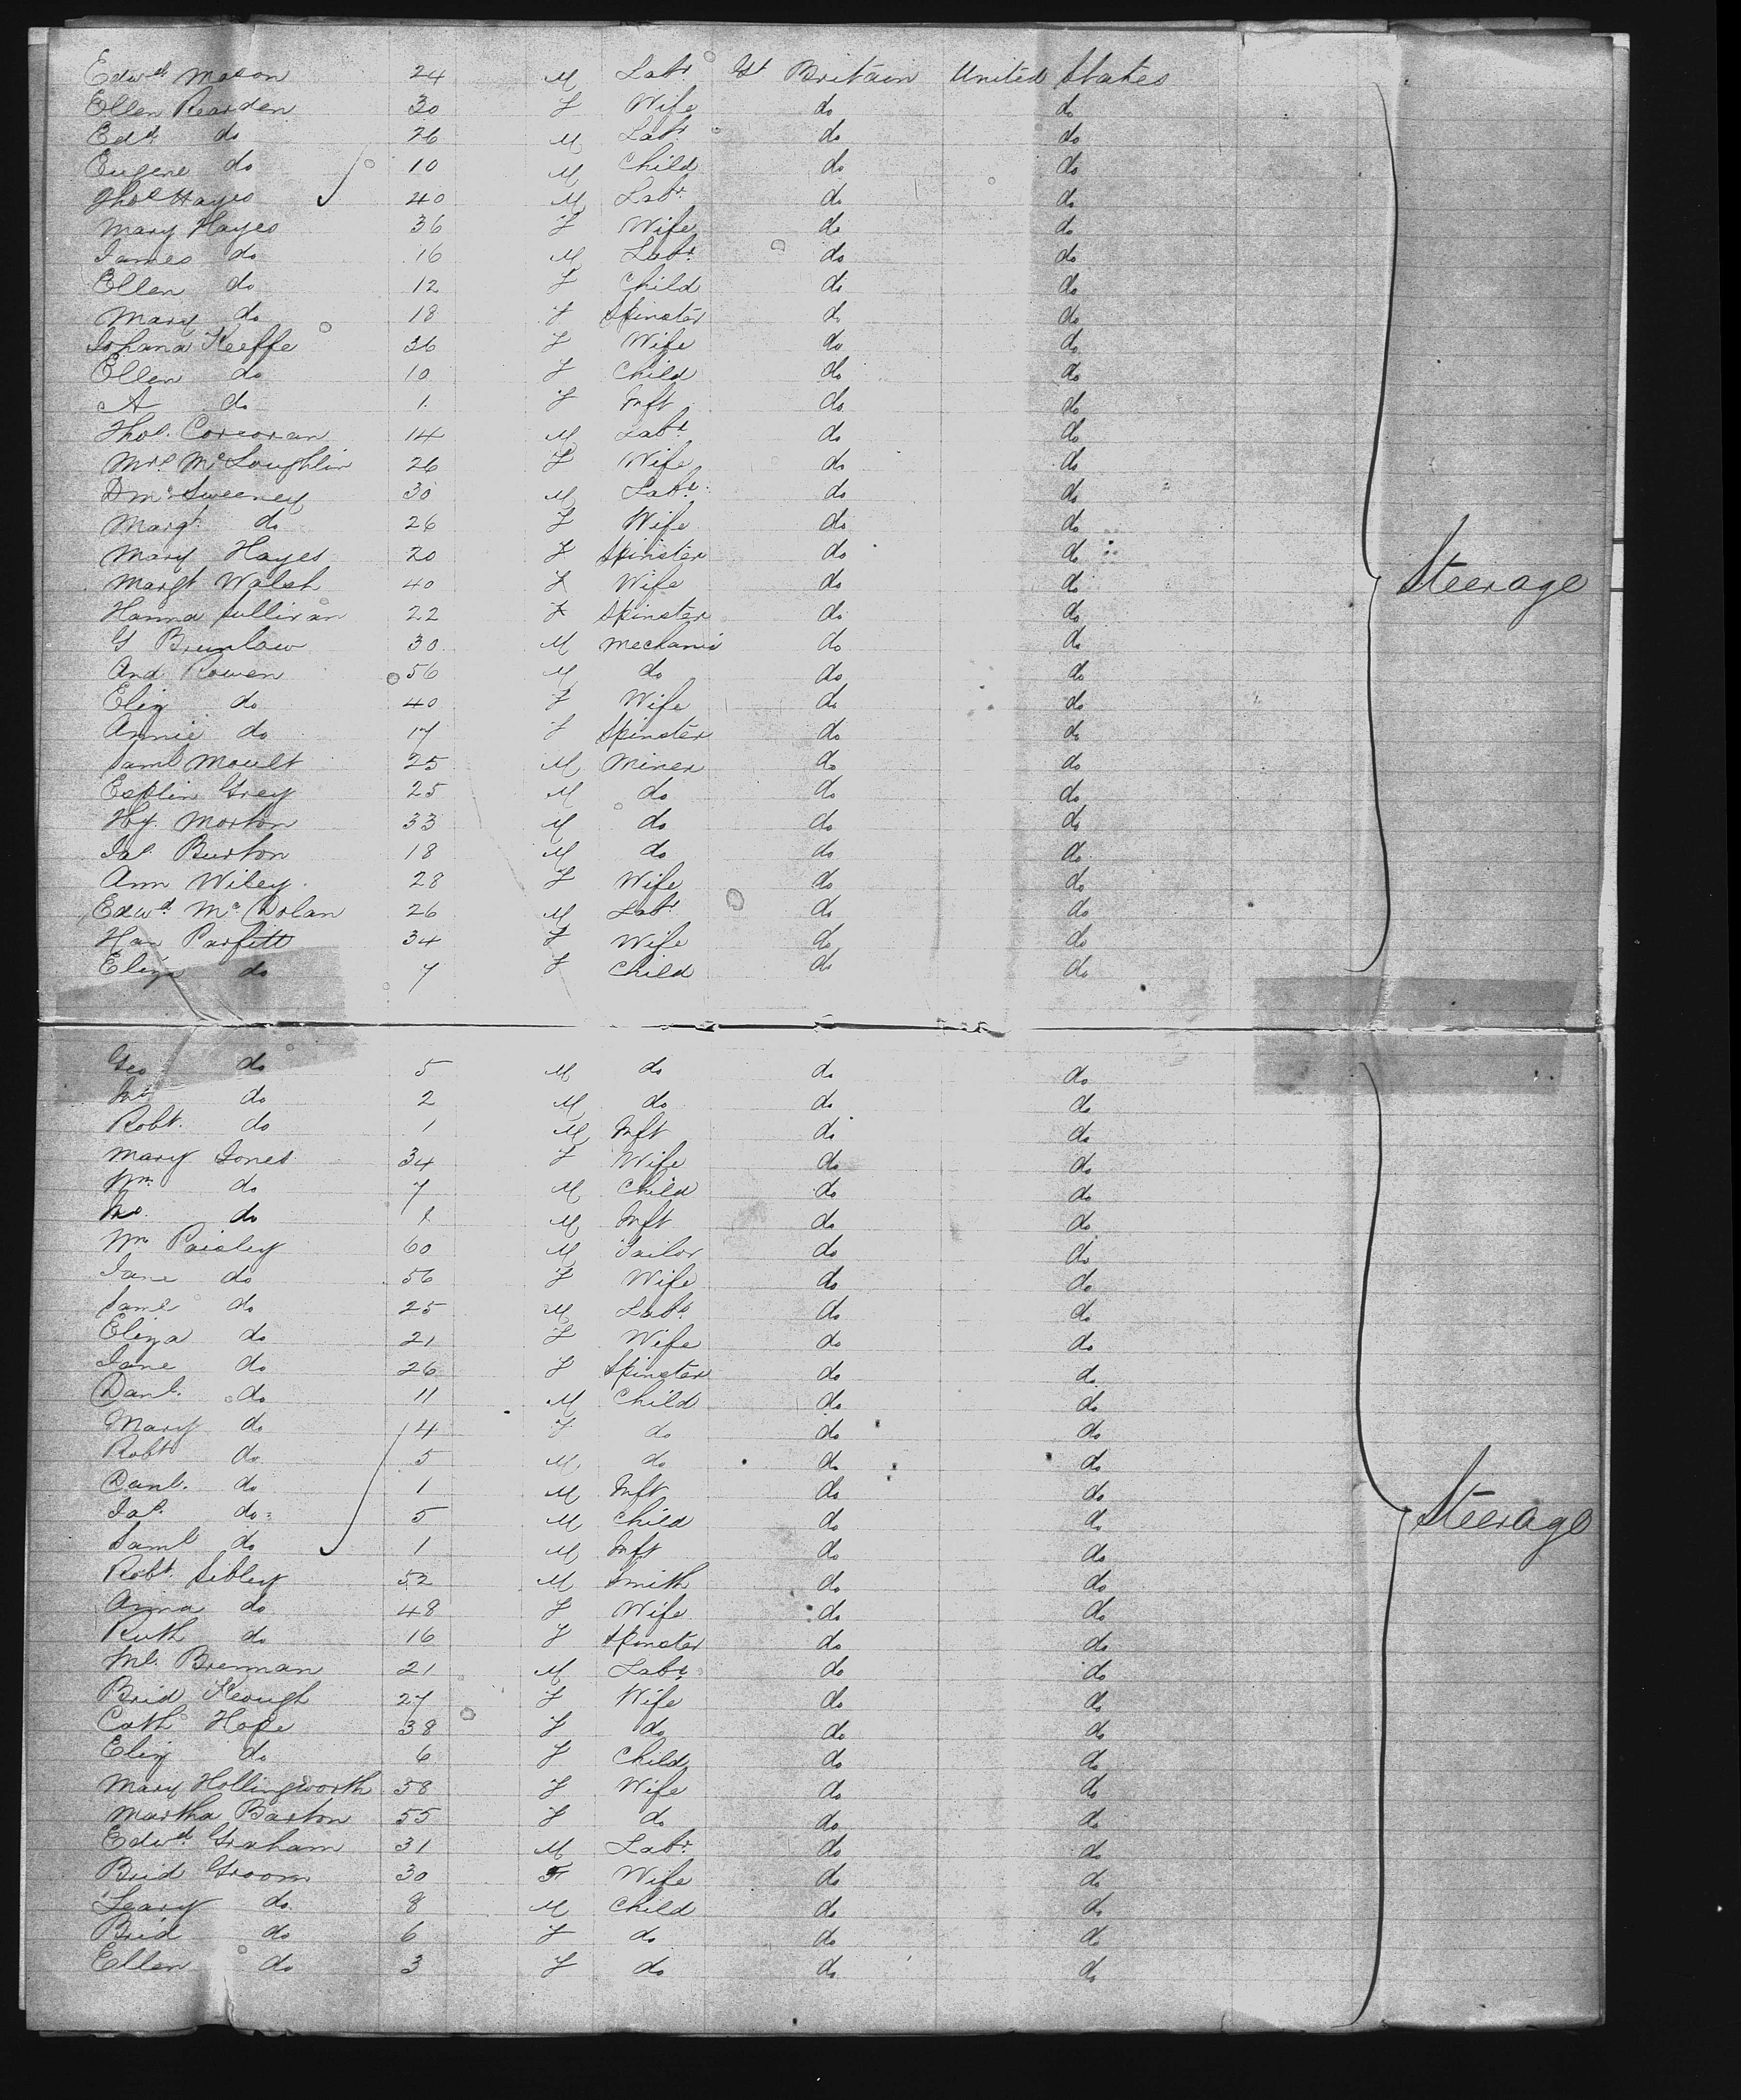 Edwd Mason 24 M Labr Gt Britain United States
Ellen Rearden 30 F Wife do do
Edd do 26 M Labr do do
Eugene do 10 M Child do do
Thos Hayes 40 M Labr do do
Mary Hayes 36 F Wife do do
James do 16 M Labr do do
Ellen do 12 F Child do do
Mary do 18 F Spinster do do
Johana Keeffe 36 F Wife do do
Ellen do 10 F Child do do
A do 1 F Inft do do
Thos. Corcoran 14 M Labr do do
Mrs McLoughlin 26 F Wife do do
D McSweeney 30 M Labr do do
Margt do 26 F Wife do do
Mary Hayes 20 F Spinster do do
Margt Walsh 40 F Wife do do
Steerage
Hanna Sullivan 22 F Spinster do do
G Brunlow 30 M Mechanic do do
And Rowen 56 M do do do
Eliz do 40 F Wife do do
Annie do 17 F Spinster do do
Saml Moult 25 M Miner do do
Esplin Grey 25 M do do do
Hy. Morton 33 M do do do
Jas. Burton 18 M do do do
Ann Wiley 28 F Wife do do
Edwd Mc Dolan 26 M Labr do do
Han Parfitt 34 F Wife do do
Eliza do 7 F Child do do
Geo do 5 M do do do
do 2 M do do do
Robt. do 1 M Inft do do
Mary Jones 34 F Wife do do
Wm do 7 M Child do do
do 1 M Inft do do
Wm Paisley 60 M Tailor do do
Jane do 56 F Wife do do
Saml do 25 M Labr do do
Eliza do 21 F Wife do do
Jane do 26 F Spinster do do
Danl. do 11 M Child do do
Mary do 4 F do do do
Robt do 5 M do do do
Danl. do 1 M Inft do do
Jas. do 5 M Child do do
Steerage
Saml do 1 M Inft do do
Robt. Sibley 52 M Smith do do
Anna do 48 F Wife do do
Ruth do 16 F Spinster do do
Ml. Brennan 21 M Labr do do
Brid Keough 27 F Wife do do
Cath Hope 38 F do do do
Eliz do 6 F Child do do
Mary Hollingworth 38 F Wife do do
Martha Barton 55 F do do do
Edwd Graham 31 M Labr do do
Brid Groom 30 F Wife do do
Leary do 8 M Child do do
Brid do 6 F do do do
Ellen do 3 F do do do